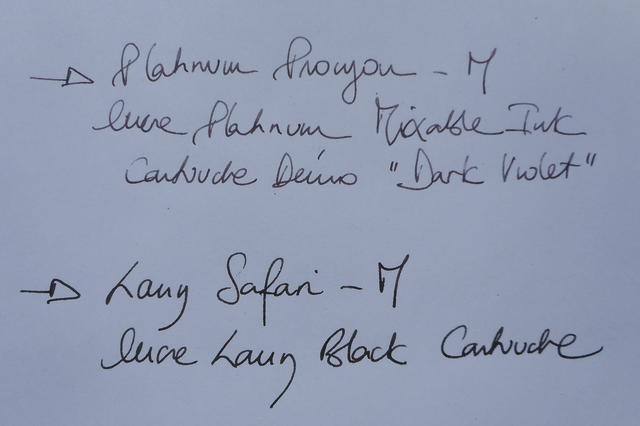 → Platinum Procyon - M
Encre Platinum Mixable Ink
Cartouche Démo "Dark Violet"
→ Lamy Safari - M
Encre Lamy Black Cartouche